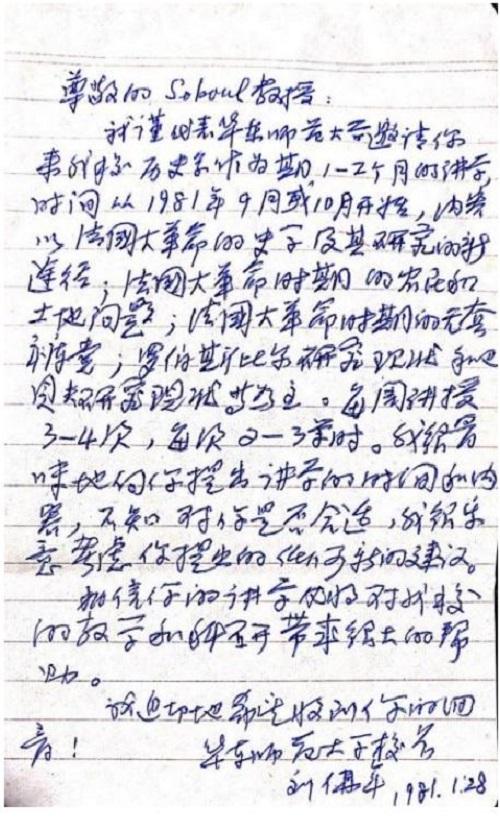 尊敬的 Soboul 教授：
我谨代表华东师范大学邀请你
来我校历史系作为期1-2个月的讲学,
时间从1981年9月或10月开始，内容
以法国大革命的史学及其研究的新
途径；法国大革命时期的农民和
土地问题；法国大革命时期的无套
裤党；罗伯斯比尔研究现状和也
研究现状等为主。每周讲授
3-4次，每次2-3课时。我很冒
昧地向你提出讲学的时间和内
容，不知对你是否合适，我很乐
意考虑你提出的任何新的建议。
相信你的讲学必将对我校
的教学和科研带来很大的帮
助。
我迫切地希望收到你的回
音！ 华东师范大学校长
刘佛年, 1981.1.28